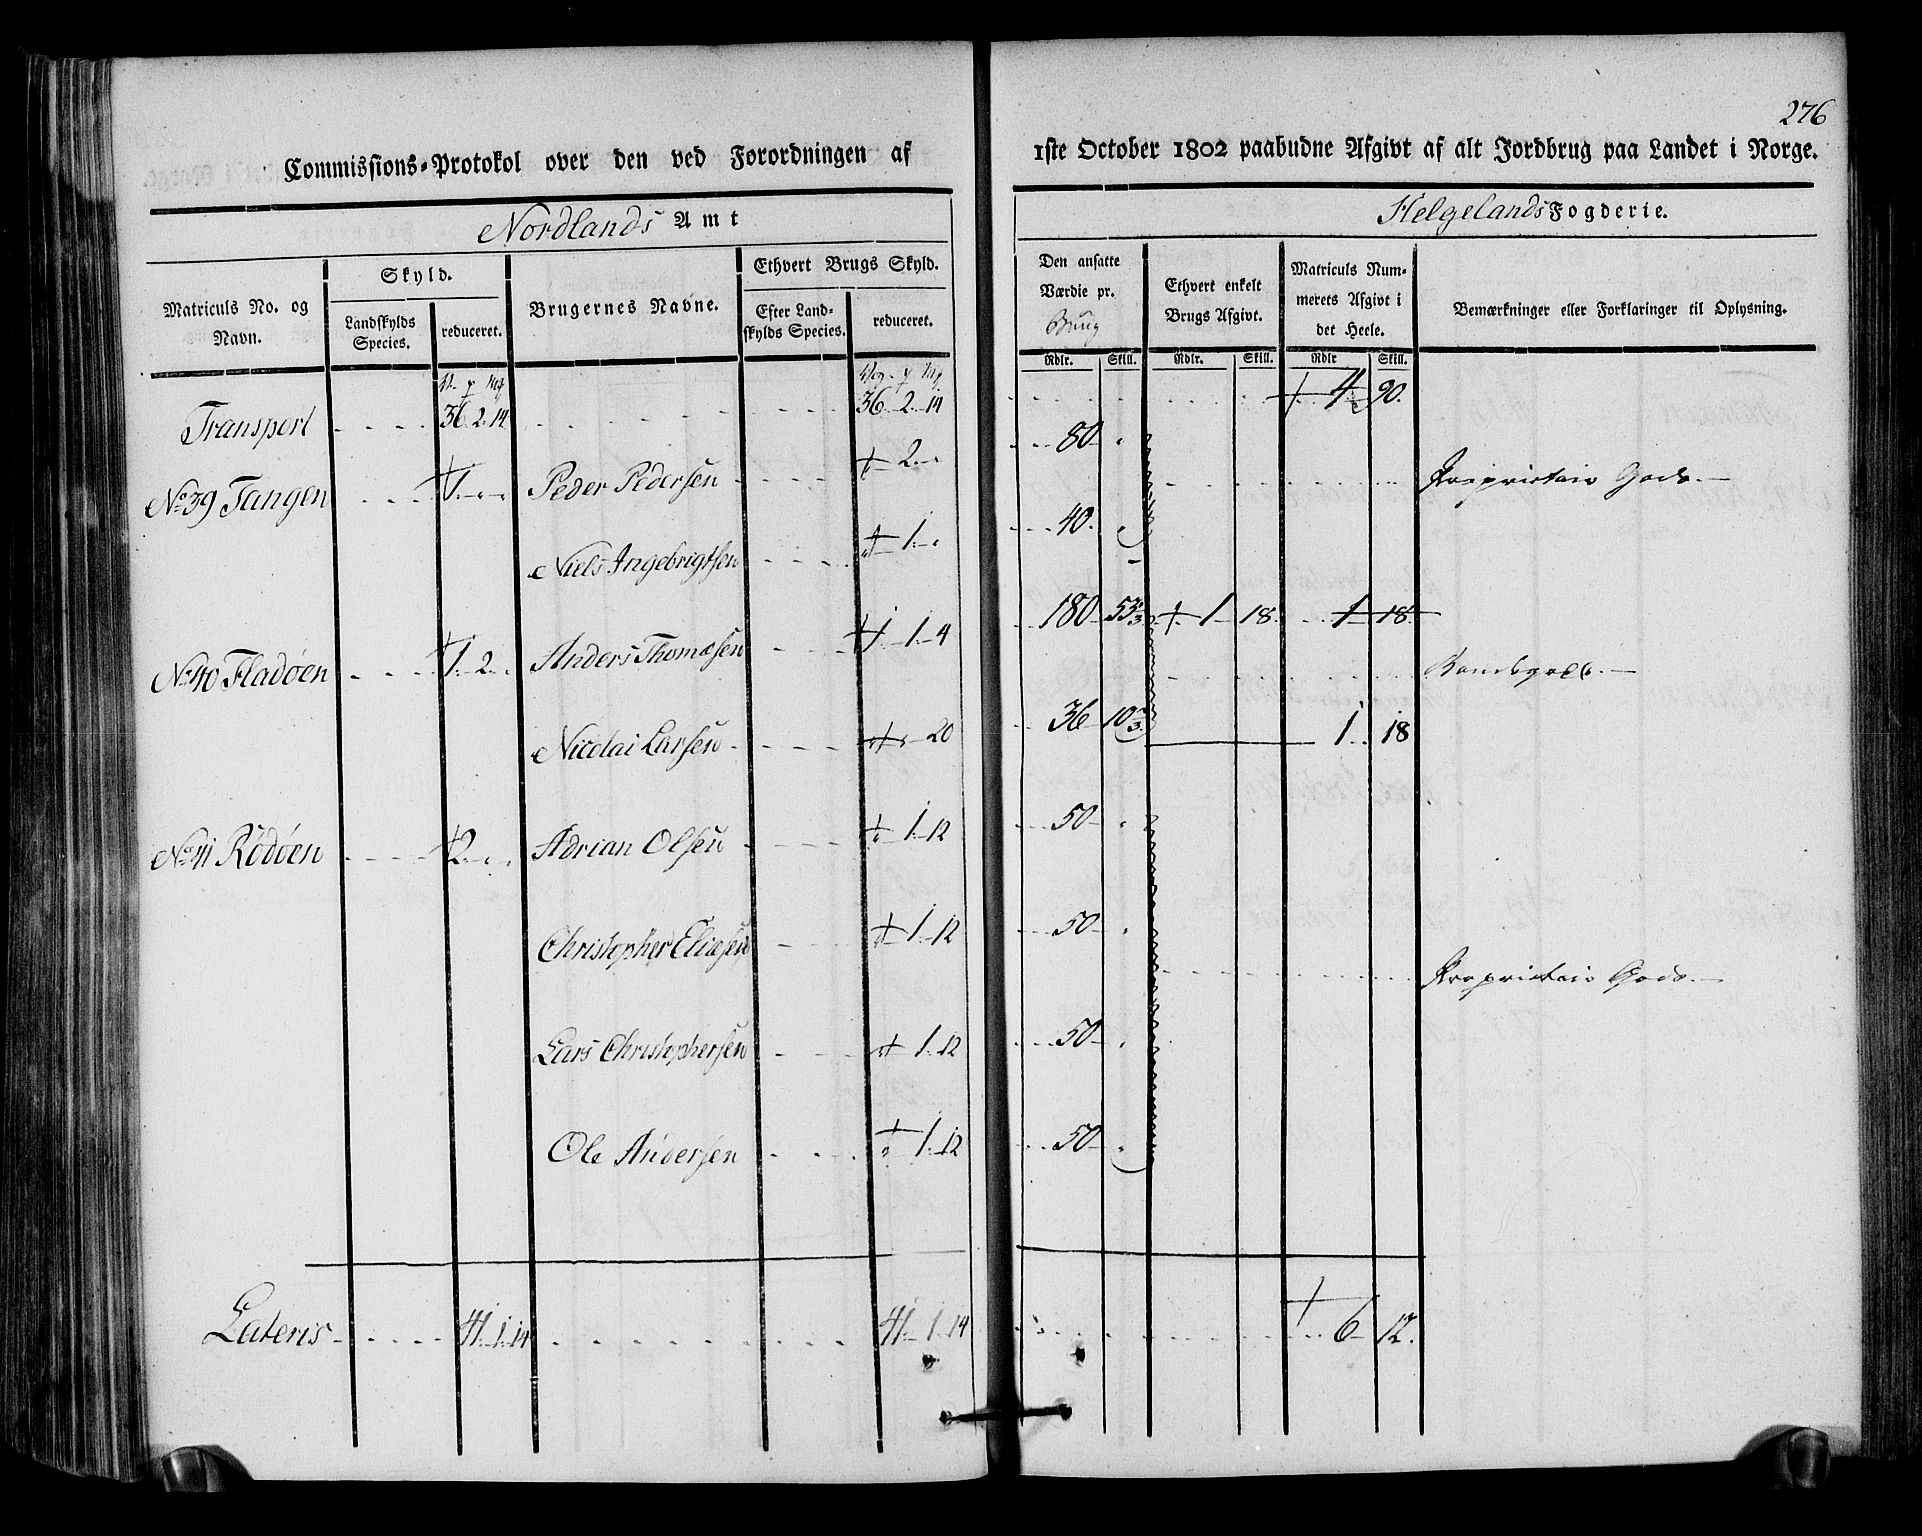 276
Commissions-Protokol over den ved Forordningen af 1ste October 1802 paabudne Afgivt af alt Jordbrug paa Landet i Norge.
Nordlands Amt
Helgelands Fogderie.
Matriculs No. og Navn.
Skyld.
Landskylds Species.
reduceret.
Brugernes Navne.
Ethvert Brugs Skyld.
Efter Landskylds Species.
reduceret.
Den ansatte Værdie pr. Brug
Ethvert enkelt Brugs Afgivt.
Matriculs Nummerets Afgivt i det Heele.
Bemærkninger eller Forklaringer til Oplysning.
Rdlr. Skill. Rdlr. Skill. Rdlr Skill.
Transport 36. 2. 14 36. 2. 14 4 90.
No 39 Tangen 1. Peder Pedersen 2. 80 Proprietair Gods.
Niels Ingebrigtsen 1. 40.
No 40 Fladøen 1. 2. Anders Thomæsen 1. 1. 4 180 53 1/3 1 18. 1 18. Bondegods.
Nicolai Larsen 20 36 10 2/3 1 18
No 41 Rødøen 2. Adrian Olsen 1. 12 50
Christopher Eliæsen 1. 12 50 Proprietair Gods.
Lars Christophersen 1. 12 50
Ole Andersen 1. 12 50
Lateris 41. 1. 14 41. 1. 14 6 12.